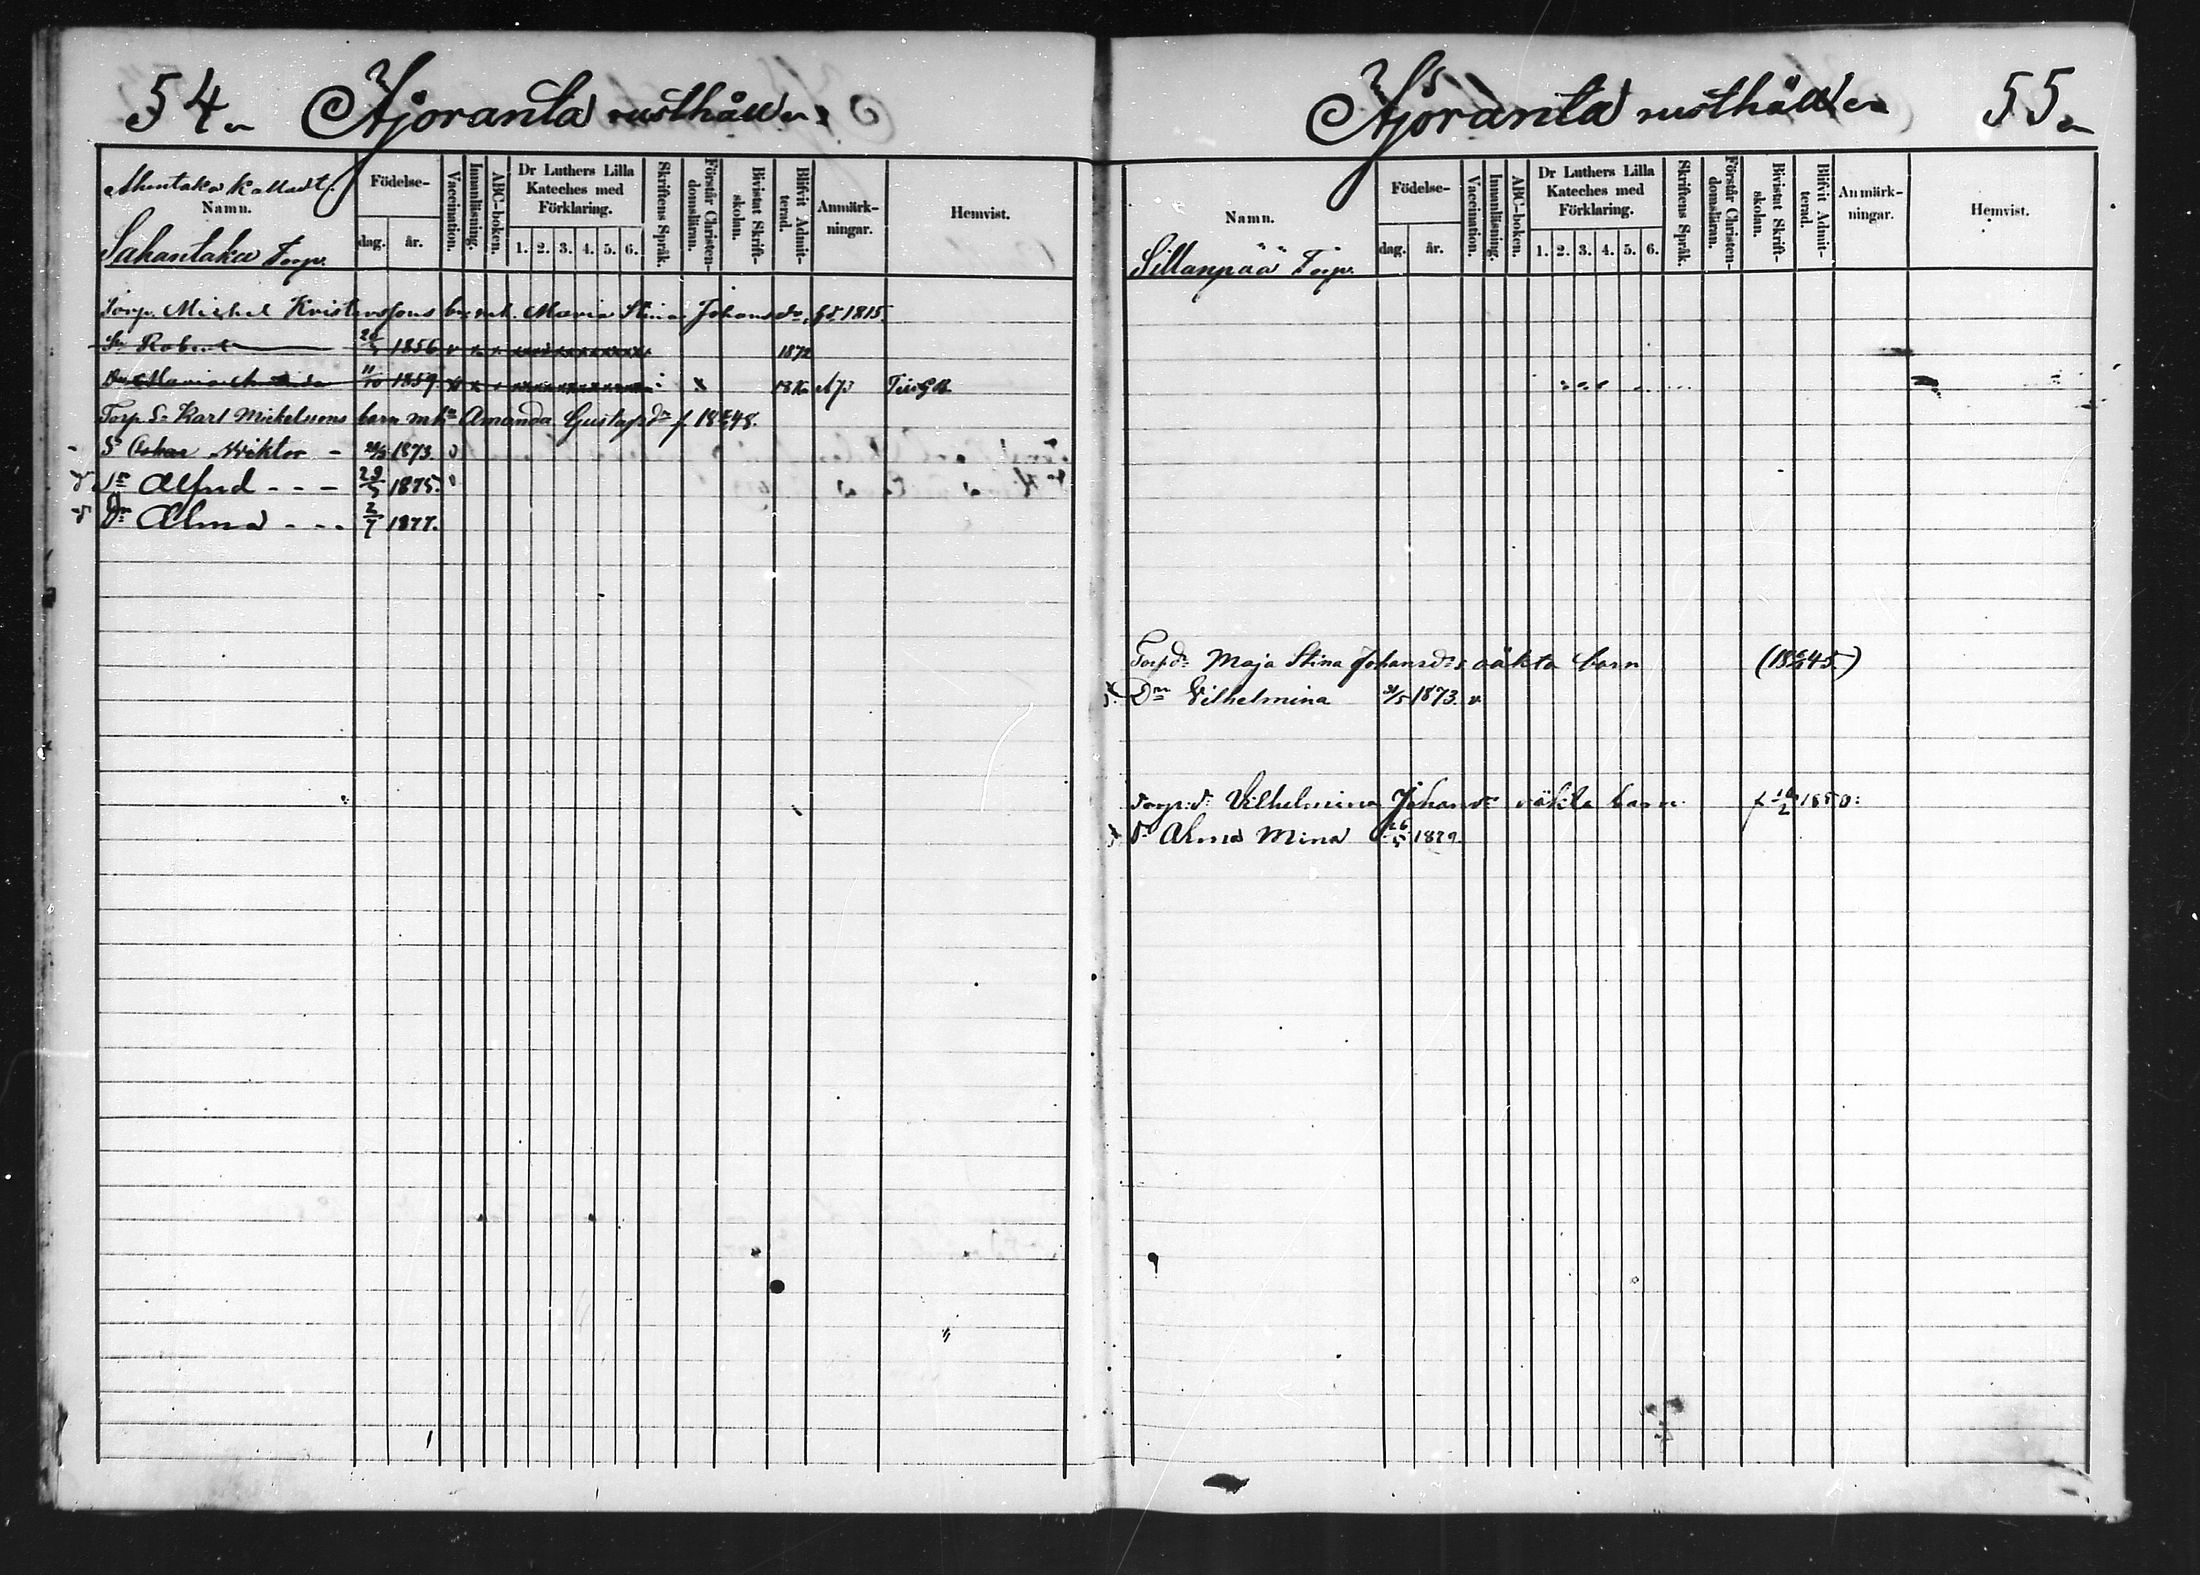 54. Äjöranta rusthåll
Namn.
Födelse-
dag.
år.
Vaccination.
Innanläsning.
ABC-boken.
Dr Luthers Lilla Kateches med Förklaring.
1. 2. 3. 4. 5. 6.
Skriftens Språk.
Förstår Christen-domsläran.
Bivistat Skrift-skolan.
Blifvit Admit-terad.
Anmärk-ningar.
Hemvist.
Sahantaka Torp.
Torp. Michel Kristersons barn m. Maria Stina Johansdr. fd 1815.
Sn Robert 1856 v 1872
Dr Maria 11/10 1859
Torp. S. Karl Mickelssons barn m. hu Amanda Gustafsdr f. 1848.
Sn Oskar Wiktor - 1873. v
Sn Alfred - - - 29/5 1875.
Dr Alma - - - 2/7 1877.
Äjöranta rusthåll 55
Namn.
Födelse-
dag.
år.
Vaccination.
Innanläsning.
ABC-boken.
Dr Luthers Lilla Kateches med Förklaring.
1. 2. 3. 4. 5. 6.
Skriftens Språk.
Förstår Christen-domsläran.
Bivistat Skrift-skolan.
Blifvit Admit-terad.
Anmärk-ningar.
Hemvist.
Sillanpää Torp.
Torpdr Maja Stina Johansdrs oäkta barn (1845)
Dr Vilhelmina 31/5 1873. v
Torp. dr Vilhelmina Johansdr oäkta barn f. 1850.
Dr Alma Mina 26/5 1879.